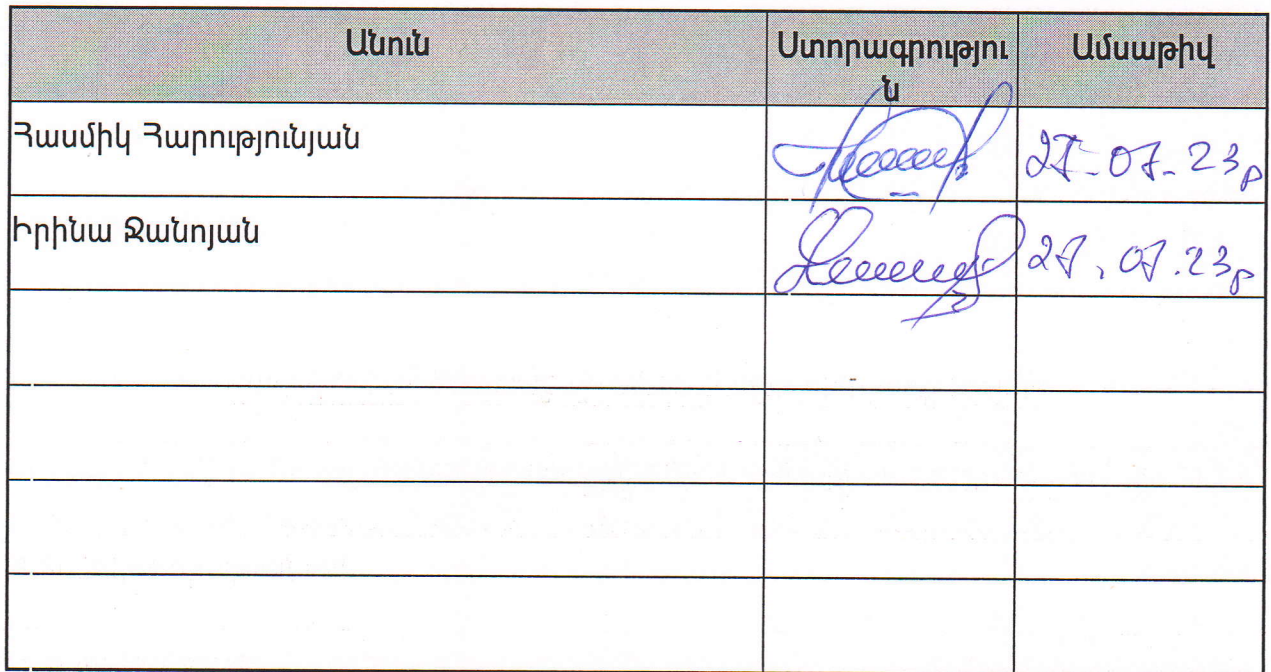 Անուն Ստորագրությու
ն Ամսաթիվ
Հասմիկ Հարությունյան 27-07-23թ
Իրինա Ջանոյան 27.07.23թ